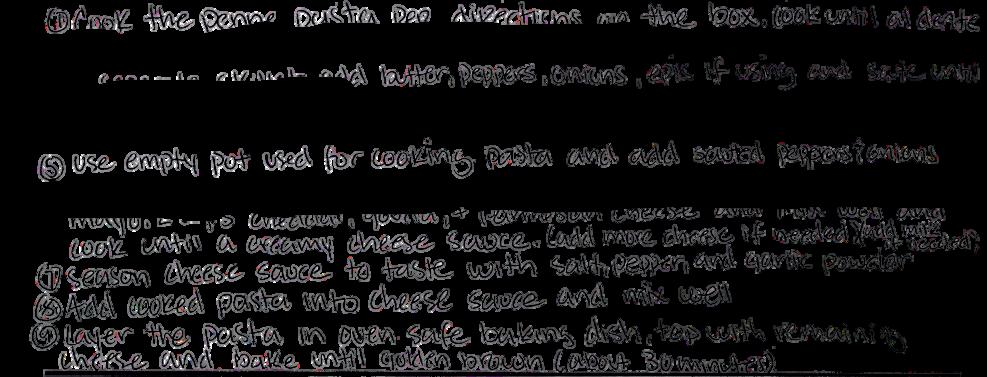 ① Cook the penne pasta per directions on the box. Cook until al dente
add butter, peppers, onions, if using and sauté until
⑤ use empty pot used for cooking pasta and add sautéd peppers & onions
mayo, cheddar, gouda, + parmesan cheese and mix well and
cook until a creamy cheese sauce. (add more cheese if needed)
⑦ Season cheese sauce to taste with salt, pepper, and garlic powder
⑧ Add cooked pasta into cheese sauce and mix well
⑨ Layer the pasta in oven safe baking dish. top with remaining
cheese and bake until golden brown (about 30 minutes)